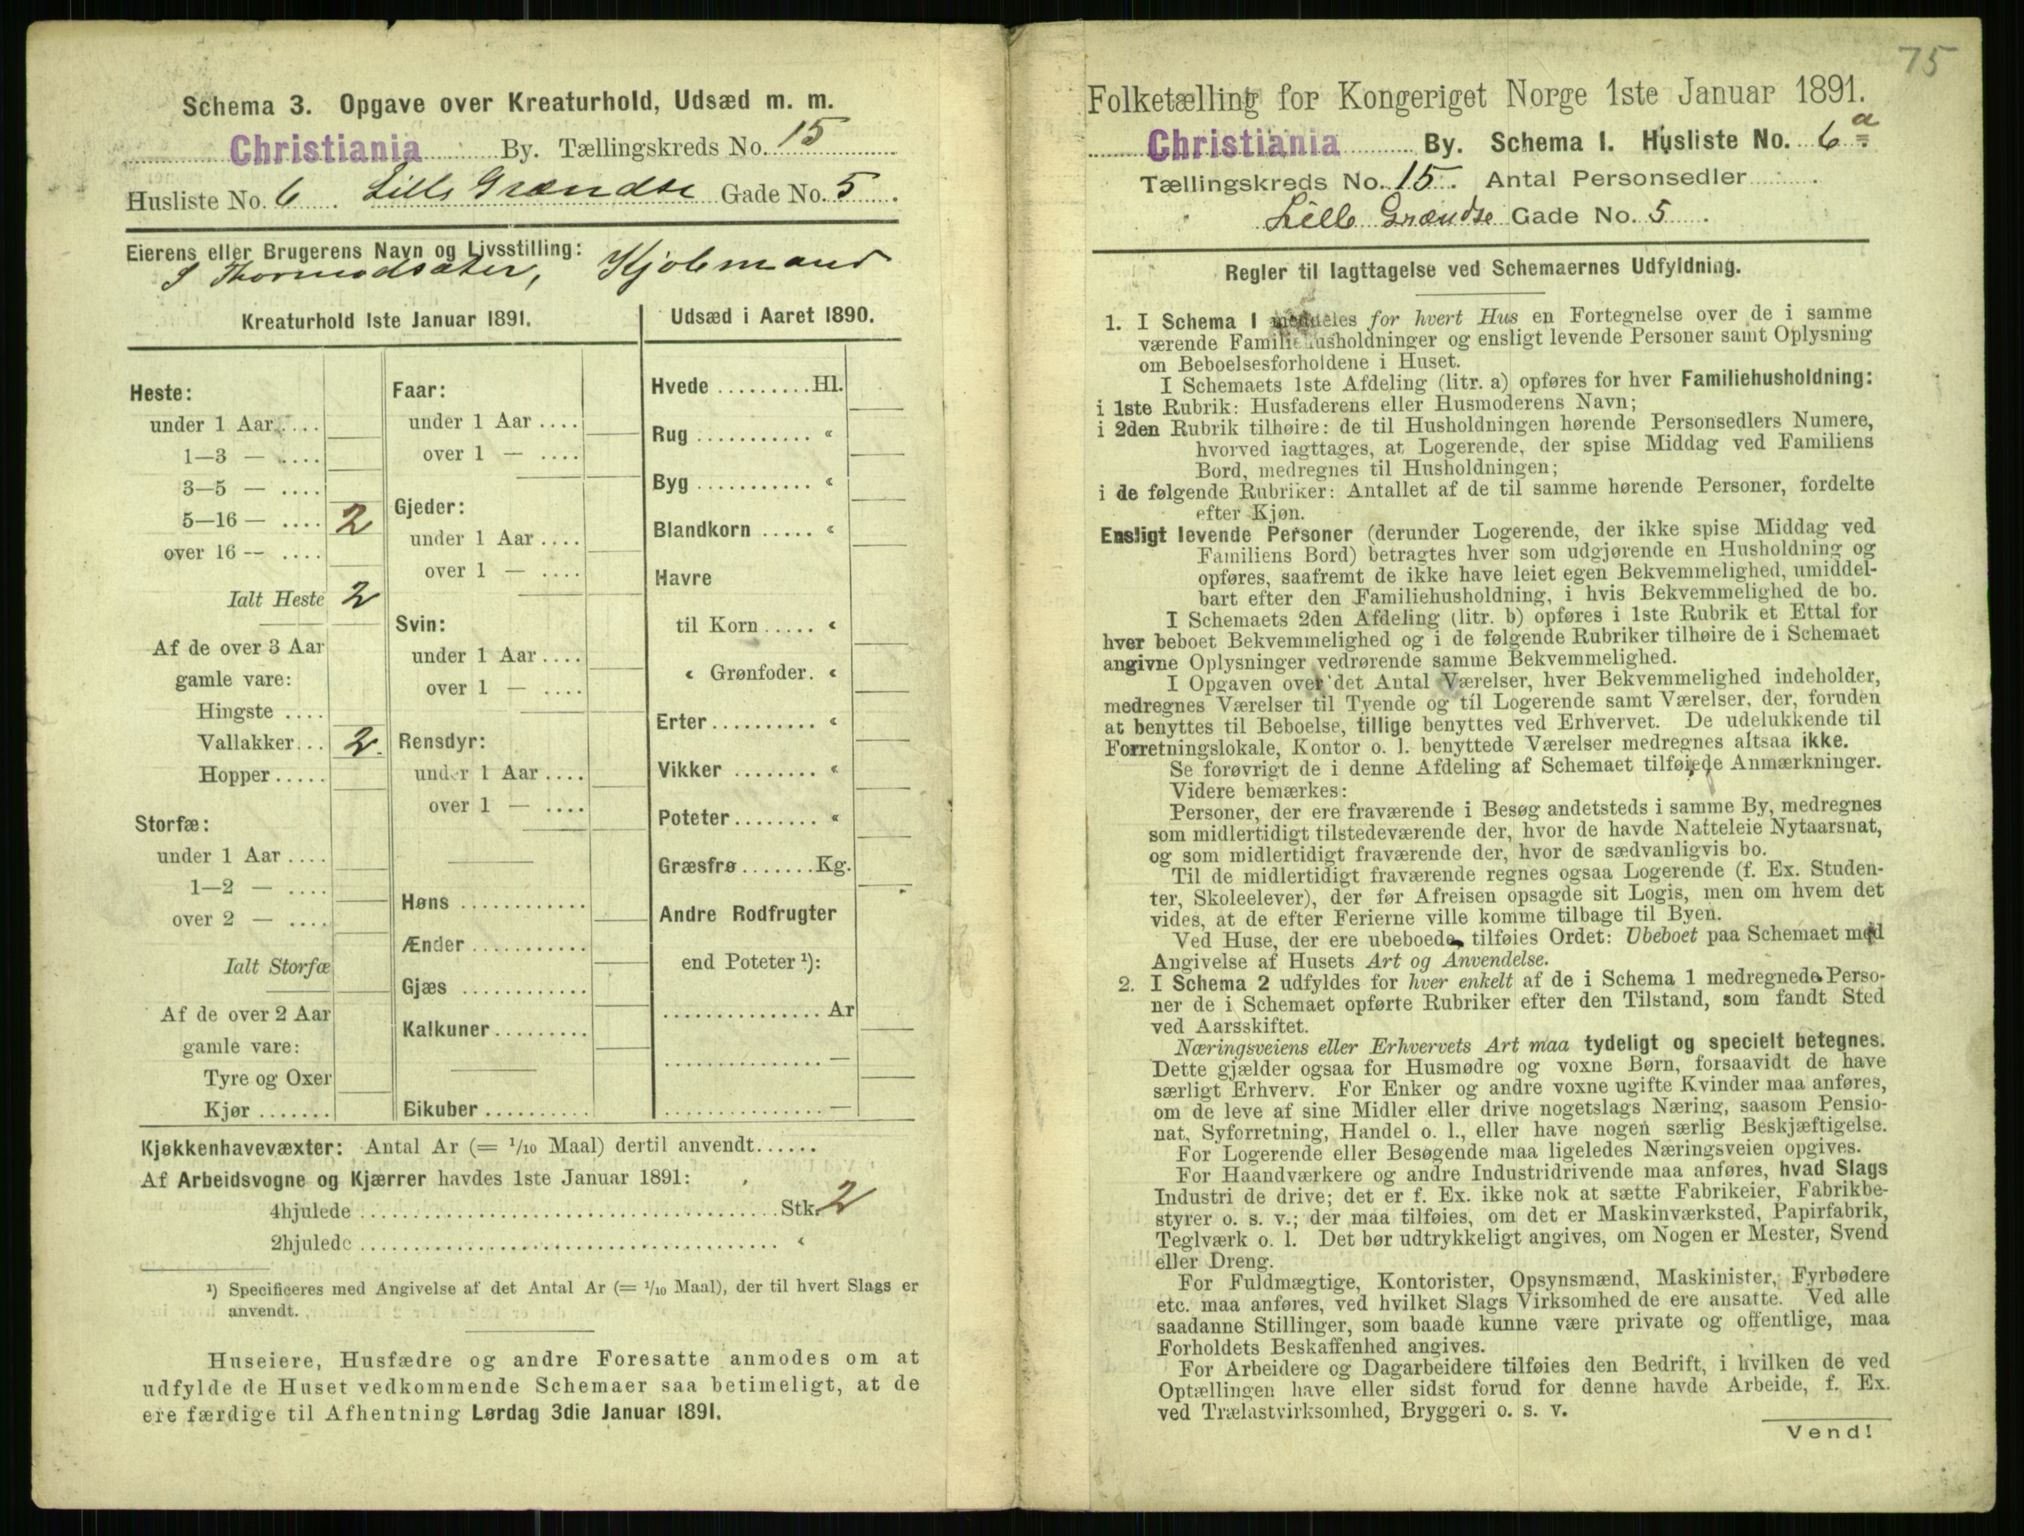 Schema 3. Opgave over Kreaturhold, Udsæd m. m.
Christiania By. Tællingskreds No. 15
Husliste No. 6 Lille Grændse Gade No. 5
Eierens eller Brugerens Navn og Livsstilling:
S Thormodsæter, Kjøbmand
Kreaturhold 1ste Januar 1891.
Heste:
under 1 Aar ....
1—3 — ....
3—5 — ....
5—16 — .... 2
over 16 — ....
Ialt Heste 2
Af de over 3 Aar
gamle vare:
Hingste ....
Vallakker... 2
Hopper .....
Storfæ:
under 1 Aar ....
1—2 — ....
over 2 — ....
Ialt Storfæ
Af de over 2 Aar
gamle vare:
Tyre og Oxer
Kjør .......
Faar:
under 1 Aar ....
over 1 — ....
Gjeder:
under 1 Aar ....
over 1 — ....
Svin:
under 1 Aar ....
over 1 — ....
Rensdyr:
under 1 Aar ....
over 1 — ....
Høns ............
Ænder ...........
Gjæs ............
Kalkuner .........
Bikuber ..........
Udsæd i Aaret 1890.
Hvede ......... Hl.
Rug ........... «
Byg ........... «
Blandkorn ..... «
Havre
til Korn ..... «
« Grønfoder. «
Erter .......... «
Vikker ........ «
Poteter ........ «
Græsfrø ....... Kg.
Andre Rodfrugter
end Poteter ¹):
............... Ar
............... —
............... —
Kjøkkenhavevæxter: Antal Ar (= 1/10 Maal) dertil anvendt......
Af Arbeidsvogne og Kjærrer havdes 1ste Januar 1891:
4hjulede ........................................ Stk. 2
2hjulede ........................................ «
¹) Specificeres med Angivelse af det Antal Ar (= 1/10 Maal), der til hvert Slags er
anvendt.
Huseiere, Husfædre og andre Foresatte anmodes om at
udfylde de Huset vedkommende Schemaer saa betimeligt, at de
ere færdige til Afhentning Lørdag 3die Januar 1891.
75
Folketælling for Kongeriget Norge 1ste Januar 1891.
Christiania By. Schema 1. Husliste No. 6 a
Tællingskreds No. 15. Antal Personsedler
Lille Grændse Gade No. 5
Regler til Iagttagelse ved Schemaernes Udfyldning.
1. I Schema 1 meddeles for hvert Hus en Fortegnelse over de i samme
værende Familiehusholdninger og ensligt levende Personer samt Oplysning
om Beboelsesforholdene i Huset.
I Schemaets 1ste Afdeling (litr. a) opføres for hver Familiehusholdning:
i 1ste Rubrik: Husfaderens eller Husmoderens Navn;
i 2den Rubrik tilhøire: de til Husholdningen hørende Personsedlers Numere,
hvorved iagttages, at Logerende, der spise Middag ved Familiens
Bord, medregnes til Husholdningen;
i de følgende Rubriker: Antallet af de til samme hørende Personer, fordelte
efter Kjøn.
Ensligt levende Personer (derunder Logerende, der ikke spise Middag ved
Familiens Bord) betragtes hver som udgjørende en Husholdning og
opføres, saafremt de ikke have leiet egen Bekvemmelighed, umiddel-
bart efter den Familiehusholdning, i hvis Bekvemmelighed de bo.
I Schemaets 2den Afdeling (litr. b) opføres i 1ste Rubrik et Ettal for
hver beboet Bekvemmelighed og i de følgende Rubriker tilhøire de i Schemaet
angivne Oplysninger vedrørende samme Bekvemmelighed.
I Opgaven over det Antal Værelser, hver Bekvemmelighed indeholder,
medregnes Værelser til Tyende og til Logerende samt Værelser, der, foruden
at benyttes til Beboelse, tillige benyttes ved Erhvervet. De udelukkende til
Forretningslokale, Kontor o. l. benyttede Værelser medregnes altsaa ikke.
Se forøvrigt de i denne Afdeling af Schemaet tilføiede Anmærkninger.
Videre bemærkes:
Personer, der ere fraværende i Besøg andetsteds i samme By, medregnes
som midlertidigt tilstedeværende der, hvor de havde Natteleie Nytaarsnat,
og som midlertidigt fraværende der, hvor de sædvanligvis bo.
Til de midlertidigt fraværende regnes ogsaa Logerende (f. Ex. Studen-
ter, Skoleelever), der før Afreisen opsagde sit Logis, men om hvem det
vides, at de efter Ferierne ville komme tilbage til Byen.
Ved Huse, der ere ubeboede, tilføies Ordet: Ubeboet paa Schemaet med
Angivelse af Husets Art og Anvendelse.
2. I Schema 2 udfyldes for hver enkelt af de i Schema 1 medregnede Perso-
ner de i Schemaet opførte Rubriker efter den Tilstand, som fandt Sted
ved Aarsskiftet.
Næringsveiens eller Erhvervets Art maa tydeligt og specielt betegnes.
Dette gjælder ogsaa for Husmødre og voxne Børn, forsaavidt de have
særligt Erhverv. For Enker og andre voxne ugifte Kvinder maa anføres,
om de leve af sine Midler eller drive nogetslags Næring, saasom Pensio-
nat, Syforretning, Handel o. l., eller have nogen særlig Beskjæftigelse.
For Logerende eller Besøgende maa ligeledes Næringsveien opgives.
For Haandværkere og andre Industridrivende maa anføres, hvad Slags
Industri de drive; det er f. Ex. ikke nok at sætte Fabrikeier, Fabrikbe-
styrer o. s. v.; der maa tilføies, om det er Maskinværksted, Papirfabrik,
Teglværk o. l. Det bør udtrykkeligt angives, om Nogen er Mester, Svend
eller Dreng.
For Fuldmægtige, Kontorister, Opsynsmænd, Maskinister, Fyrbødere
etc. maa anføres, ved hvilket Slags Virksomhed de ere ansatte. Ved alle
saadanne Stillinger, som baade kunne være private og offentlige, maa
Forholdets Beskaffenhed angives.
For Arbeidere og Dagarbeidere tilføies den Bedrift, i hvilken de ved
Optællingen have eller sidst forud for denne havde Arbeide, f. Ex.
ved Trælastvirksomhed, Bryggeri o. s. v.
Vend!